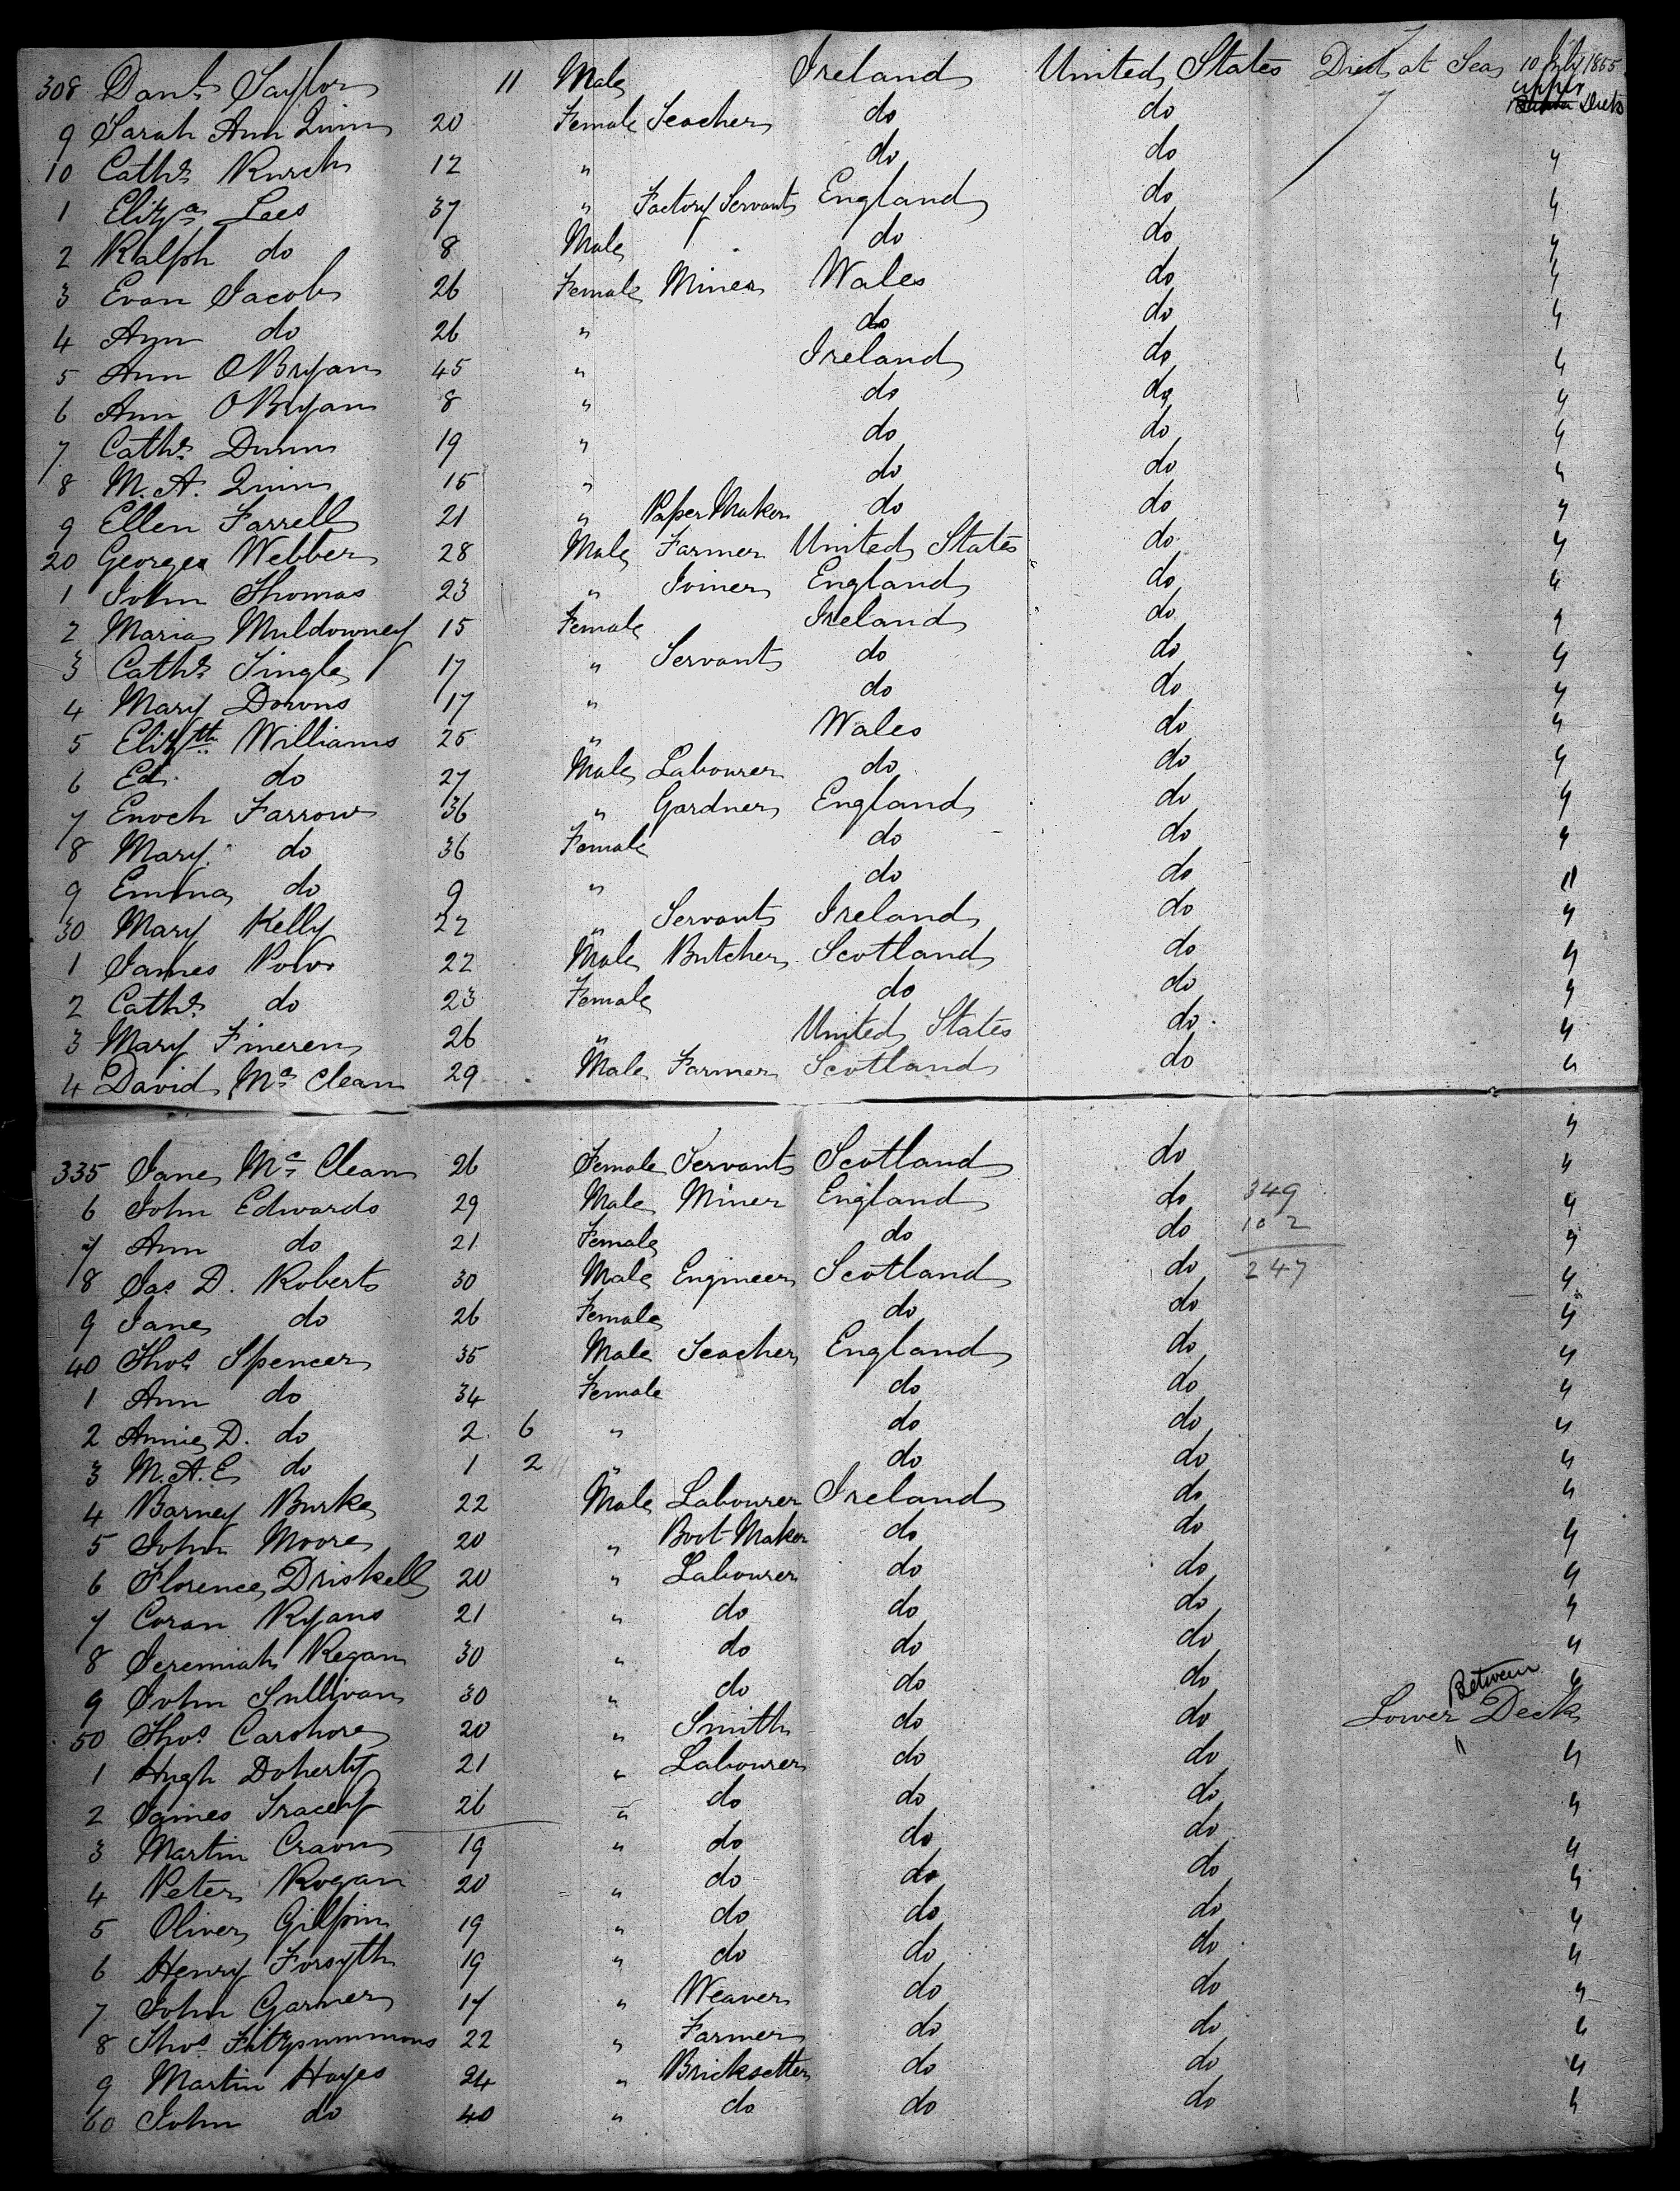 308 Danl Taylor 11 Male Ireland United States Died at Sea 10 July 1855
9 Sarah Ann Quinn 20 Female Teacher do do upper Decks
10 Cathe Kursch 12 " do do "
1 Eliza Lees 37 " Factory Servant England do "
2 Ralph do 8 Male do do "
3 Evan Jacob 26 Female Miner Wales do "
4 Ann do 26 " do do "
5 Ann OBryan 45 " Ireland do "
6 Ann OBryan 8 " do do "
7 Cathe Dunn 19 " do do "
8 M. A. Quinn 15 " do do "
9 Ellen Farrell 21 " Paper Maker do do "
20 George Webber 28 Male Farmer United States do "
1 John Thomas 23 " Joiner England do "
2 Maria Muldowney 15 Female Ireland do "
3 Cathe Tingle 17 " Servant do do "
4 Mary Downs 17 " do do "
5 Elizth Williams 25 " Wales do "
6 Ed. do 27 Male Labourer do do "
7 Enoch Farrow 36 " Gardner England do "
8 Mary do 36 Female do do "
9 Emma do 9 " do do "
30 Mary Kelly 22 " Servant Ireland do "
1 James Pow 22 Male Butcher Scotland do "
2 Cathe do 23 Female do do "
3 Mary Fineren 26 " United States do "
4 David Mc Clean 29 Male Farmer Scotland do "
335 Jane Mc Clean 26 Female Servant Scotland do "
6 John Edwards 29 Male Miner England do 349 "
7 Ann do 21 Female do do 102 "
8 Jas D. Roberts 30 Male Engineer Scotland do 247 "
9 Jane do 26 Female do do "
40 Thos Spencer 35 Male Teacher England do "
1 Ann do 34 Female do do "
2 Annie D. do 2 6 " do do "
3 M. A. E do 1 2 " do do "
4 Barney Burke 22 Male Labourer Ireland do "
5 John Moore 20 " Boot Maker do do "
6 Florence Driskell 20 " Labourer do do "
7 Coran Ryans 21 " do do do "
8 Jeremiah Regan 30 " do do do "
9 John Sullivan 30 " do do do "
50 Thos Carshore 20 " Smith do do Lower Between Deck
1 Hugh Doherty 21 " Labourer do do " "
2 James Tracey 26 " do do do "
3 Martin Craven 19 " do do do "
4 Peter Rogan 20 " do do do "
5 Oliver Gilpin 19 " do do do "
6 Henry Forsyth 19 " do do do "
7 John Garner 17 " Weaver do do "
8 Thos Fitzsummons 22 " Farmer do do "
9 Martin Hayes 24 " Bricksetter do do "
60 John do 40 " do do do "